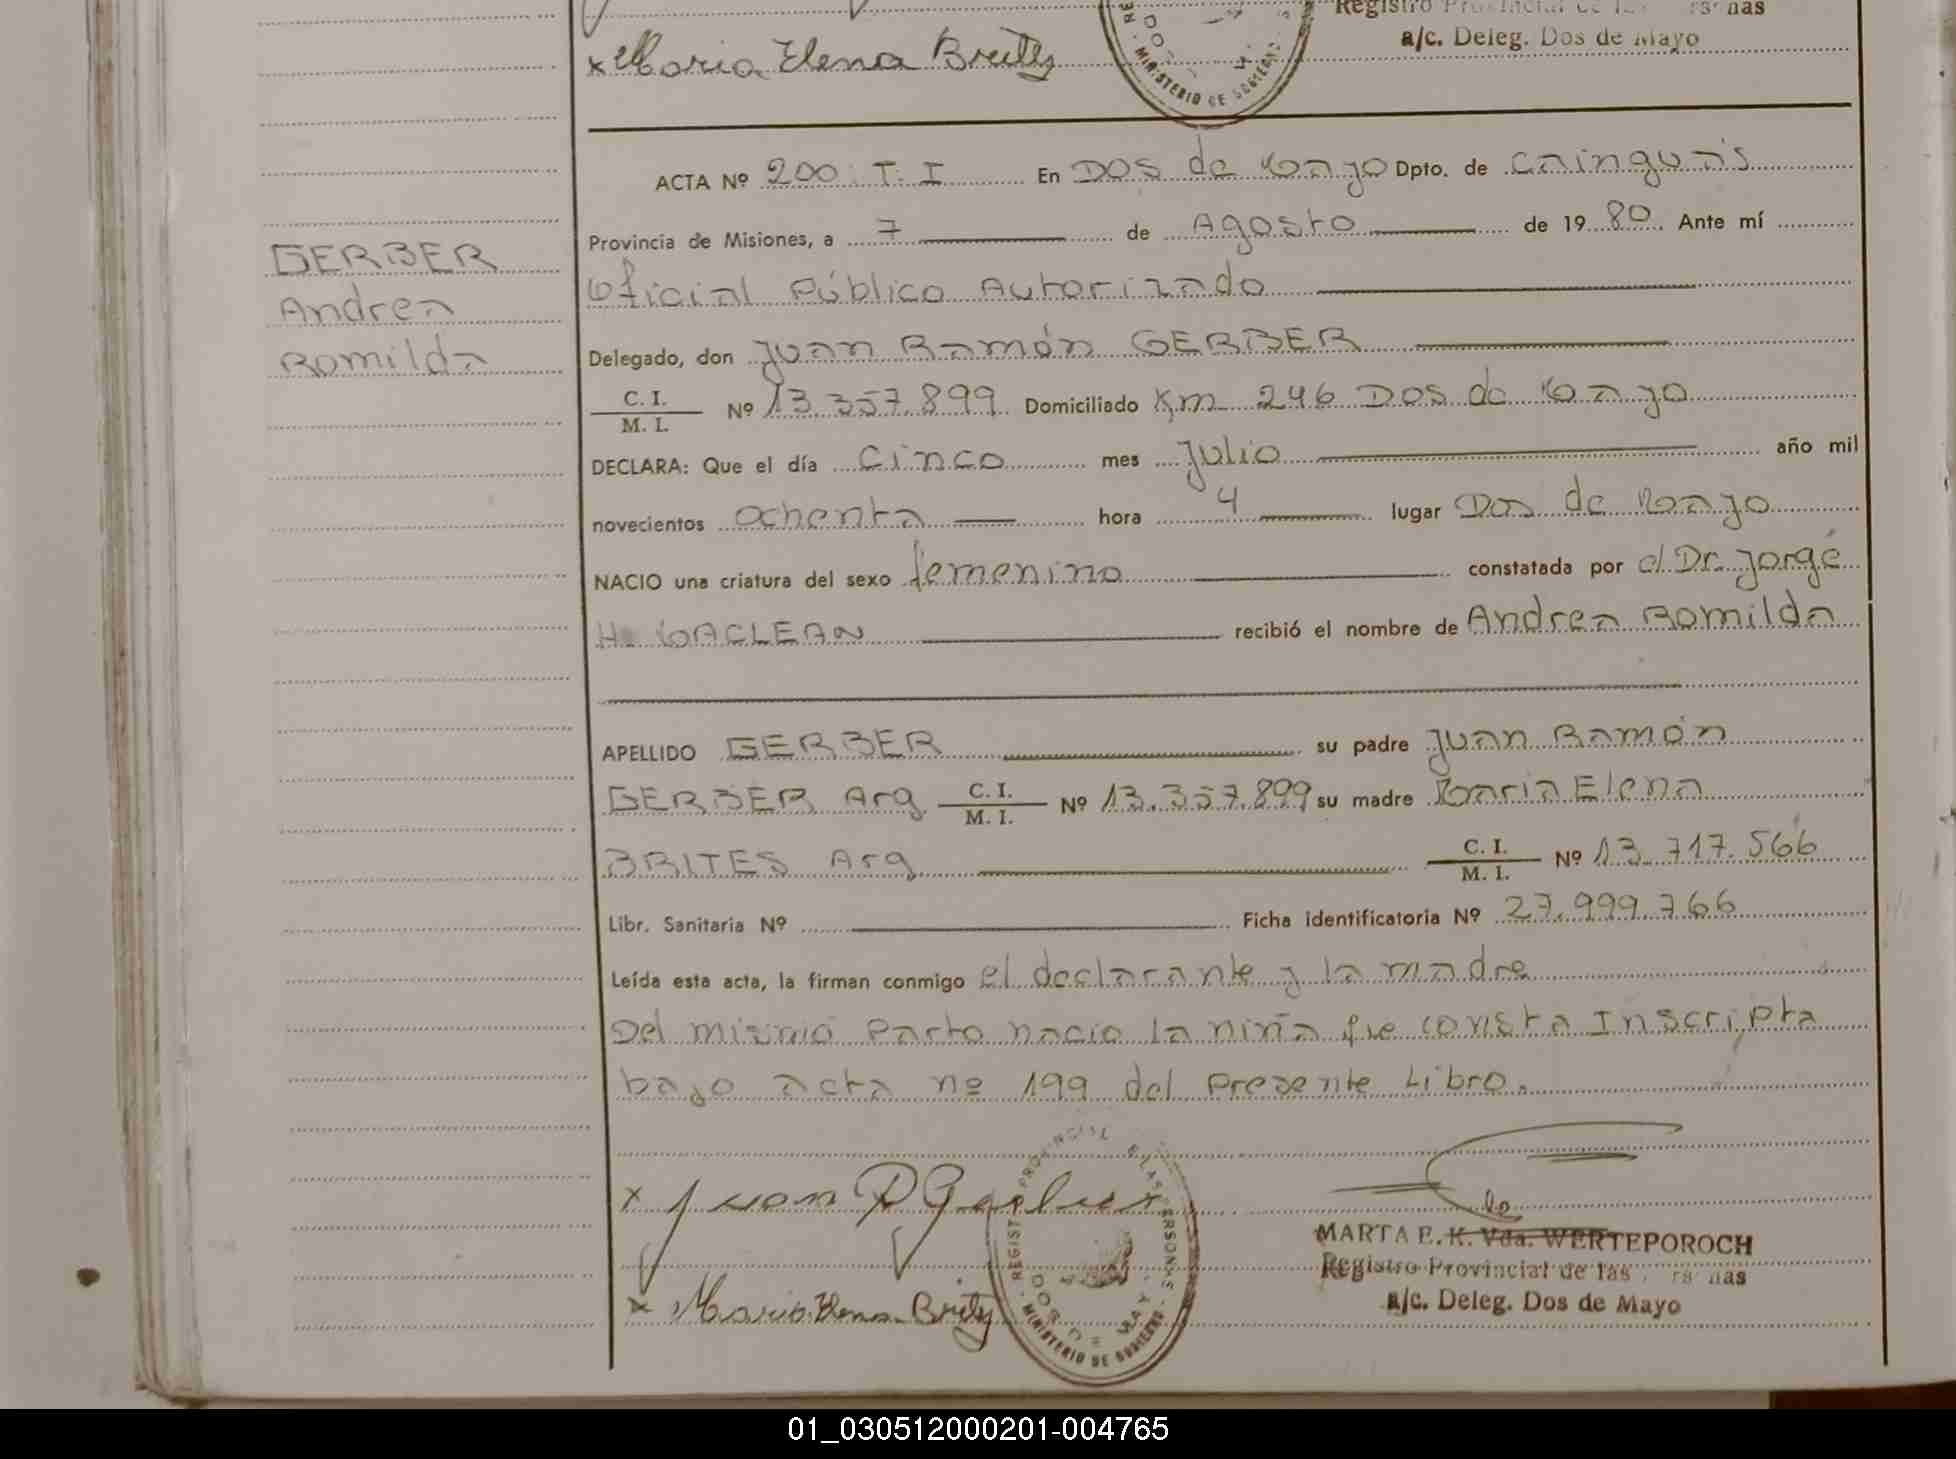 Registro Provincial de las Personas
x Maria Elena Britez
a/c. Deleg. Dos de Mayo
MINISTERIO DE GOBIERNO
ACTA Nº 200 T. I En DOS de Mayo Dpto. de Cainguas
Provincia de Misiones, a 7 de Agosto de 1980. Ante mí
GERBER
Oficial Público Autorizado
Andrea
Delegado, don Juan Ramón GERBER
Romilda
C. I. / M. I. Nº 13.357.899 Domiciliado Km 246 Dos de Mayo
DECLARA: Que el día cinco mes Julio año mil
novecientos ochenta hora 4 lugar Dos de Mayo
NACIO una criatura del sexo femenino constatada por el Dr. Jorge
H. MACLEAN recibió el nombre de Andrea Romilda
APELLIDO GERBER su padre Juan Ramón
GERBER Arg C. I. / M. I. Nº 13.357.899 su madre Maria Elena
BRITES Arg C. I. / M. I. Nº 13.717.566
Libr. Sanitaria Nº Ficha identificatoria Nº 27.999.766
Leída esta acta, la firman conmigo el declarante y la madre
Del mismo Parto nacio la niña que consta Inscripta
bajo acta nº 199 del Presente Libro.
x Juan R Gerber
MARTA E. K. Vda. WERTEPOROCH
Registro Provincial de las Personas
x Maria Elena Britez
a/c. Deleg. Dos de Mayo
REGISTRO PROVINCIAL DE LAS PERSONAS
DOS DE MAYO
MINISTERIO DE GOBIERNO
01_030512000201-004765